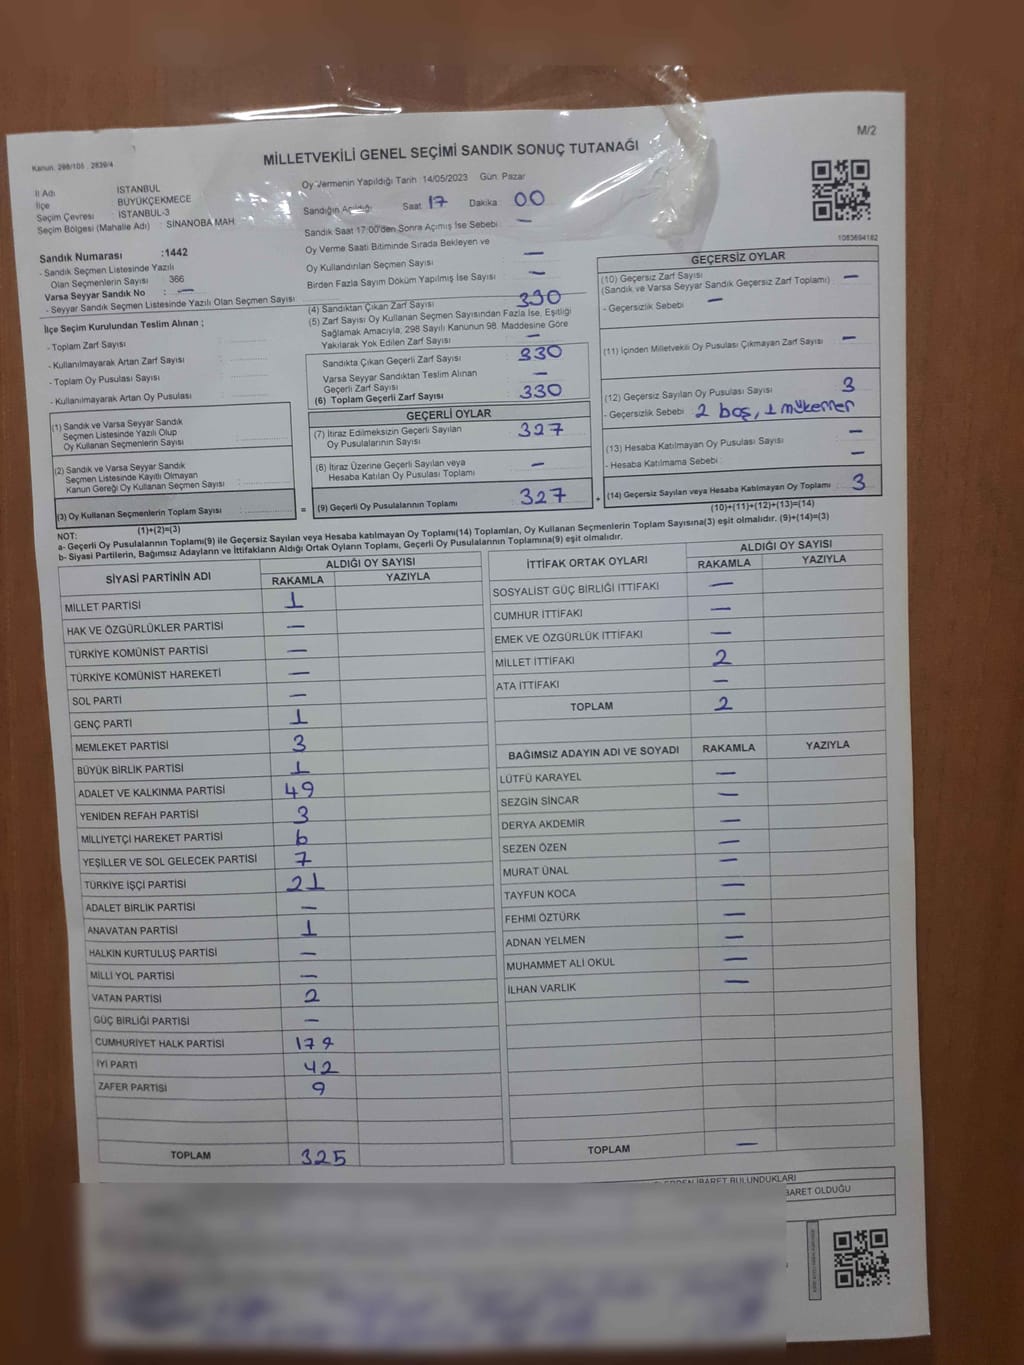 M/2
Kanun: 298/105 , 2839/4
MİLLETVEKİLİ GENEL SEÇİMİ SANDIK SONUÇ TUTANAĞI
İl Adı İSTANBUL
İlçe BÜYÜKÇEKMECE
Seçim Çevresi : İSTANBUL-3
Seçim Bölgesi (Mahalle Adı) : SİNANOBA MAH
Sandık Numarası :1442
- Sandık Seçmen Listesinde Yazılı
Olan Seçmenlerin Sayısı : 366
Varsa Seyyar Sandık No : —
- Seyyar Sandık Seçmen Listesinde Yazılı Olan Seçmen Sayısı
İlçe Seçim Kurulundan Teslim Alınan ;
- Toplam Zarf Sayısı :
- Kullanılmayarak Artan Zarf Sayısı :
- Toplam Oy Pusulası Sayısı :
- Kullanılmayarak Artan Oy Pusulası :
(1) Sandık ve Varsa Seyyar Sandık
Seçmen Listesinde Yazılı Olup
Oy Kullanan Seçmenlerin Sayısı :
(2) Sandık ve Varsa Seyyar Sandık
Seçmen Listesinde Kayıtlı Olmayan
Kanun Gereği Oy Kullanan Seçmen Sayısı :
(3) Oy Kullanan Seçmenlerin Toplam Sayısı :
(1)+(2)=(3)
Oy Vermenin Yapıldığı Tarih :14/05/2023 Gün: Pazar
Sandığın Açıldığı Saat 17 Dakika : 00
Sandık Saat 17:00'den Sonra Açılmış İse Sebebi : —
Oy Verme Saati Bitiminde Sırada Bekleyen ve
Oy Kullandırılan Seçmen Sayısı : —
Birden Fazla Sayım Döküm Yapılmış İse Sayısı : —
(4) Sandıktan Çıkan Zarf Sayısı : 330
(5) Zarf Sayısı Oy Kullanan Seçmen Sayısından Fazla İse, Eşitliği
Sağlamak Amacıyla, 298 Sayılı Kanunun 98. Maddesine Göre
Yakılarak Yok Edilen Zarf Sayısı : —
Sandıkta Çıkan Geçerli Zarf Sayısı : 330
Varsa Seyyar Sandıktan Teslim Alınan
Geçerli Zarf Sayısı : —
(6) Toplam Geçerli Zarf Sayısı : 330
GEÇERLİ OYLAR
(7) İtiraz Edilmeksizin Geçerli Sayılan
Oy Pusulalarının Sayısı : 327
(8) İtiraz Üzerine Geçerli Sayılan veya
Hesaba Katılan Oy Pusulası Toplamı : —
= (9) Geçerli Oy Pusulalarının Toplamı : 327 +
1083694162
GEÇERSİZ OYLAR
(10) Geçersiz Zarf Sayısı : —
(Sandık ve Varsa Seyyar Sandık Geçersiz Zarf Toplamı)
- Geçersizlik Sebebi : —
(11) İçinden Milletvekili Oy Pusulası Çıkmayan Zarf Sayısı : —
(12) Geçersiz Sayılan Oy Pusulası Sayısı : 3
- Geçersizlik Sebebi : 2 boş, 1 mükerrer
(13) Hesaba Katılmayan Oy Pusulası Sayısı : —
- Hesaba Katılmama Sebebi : —
(14) Geçersiz Sayılan veya Hesaba Katılmayan Oy Toplamı : 3
(10)+(11)+(12)+(13)=(14)
NOT:
a- Geçerli Oy Pusulalarının Toplamı(9) ile Geçersiz Sayılan veya Hesaba katılmayan Oy Toplamı(14) Toplamları, Oy Kullanan Seçmenlerin Toplam Sayısına(3) eşit olmalıdır. (9)+(14)=(3)
b- Siyasi Partilerin, Bağımsız Adayların ve İttifakların Aldığı Ortak Oyların Toplamı, Geçerli Oy Pusulalarının Toplamına(9) eşit olmalıdır.
SİYASİ PARTİNİN ADI ALDIĞI OY SAYISI
RAKAMLA YAZIYLA
MİLLET PARTİSİ 1
HAK VE ÖZGÜRLÜKLER PARTİSİ —
TÜRKİYE KOMÜNİST PARTİSİ —
TÜRKİYE KOMÜNİST HAREKETİ —
SOL PARTİ —
GENÇ PARTİ 1
MEMLEKET PARTİSİ 3
BÜYÜK BİRLİK PARTİSİ 1
ADALET VE KALKINMA PARTİSİ 49
YENİDEN REFAH PARTİSİ 3
MİLLİYETÇİ HAREKET PARTİSİ 6
YEŞİLLER VE SOL GELECEK PARTİSİ 7
TÜRKİYE İŞÇİ PARTİSİ 21
ADALET BİRLİK PARTİSİ —
ANAVATAN PARTİSİ 1
HALKIN KURTULUŞ PARTİSİ —
MİLLİ YOL PARTİSİ —
VATAN PARTİSİ 2
GÜÇ BİRLİĞİ PARTİSİ —
CUMHURİYET HALK PARTİSİ 179
İYİ PARTİ 42
ZAFER PARTİSİ 9
TOPLAM 325
İTTİFAK ORTAK OYLARI ALDIĞI OY SAYISI
RAKAMLA YAZIYLA
SOSYALİST GÜÇ BİRLİĞİ İTTİFAKI —
CUMHUR İTTİFAKI —
EMEK VE ÖZGÜRLÜK İTTİFAKI —
MİLLET İTTİFAKI 2
ATA İTTİFAKI —
TOPLAM 2
BAĞIMSIZ ADAYIN ADI VE SOYADI RAKAMLA YAZIYLA
LÜTFÜ KARAYEL —
SEZGİN SİNCAR —
DERYA AKDEMİR —
SEZEN ÖZEN —
MURAT ÜNAL —
TAYFUN KOCA —
FEHMİ ÖZTÜRK —
ADNAN YELMEN —
MUHAMMET ALİ OKUL —
İLHAN VARLIK —
TOPLAM —
İBARET BULUNDUKLARI
İBARET OLDUĞU